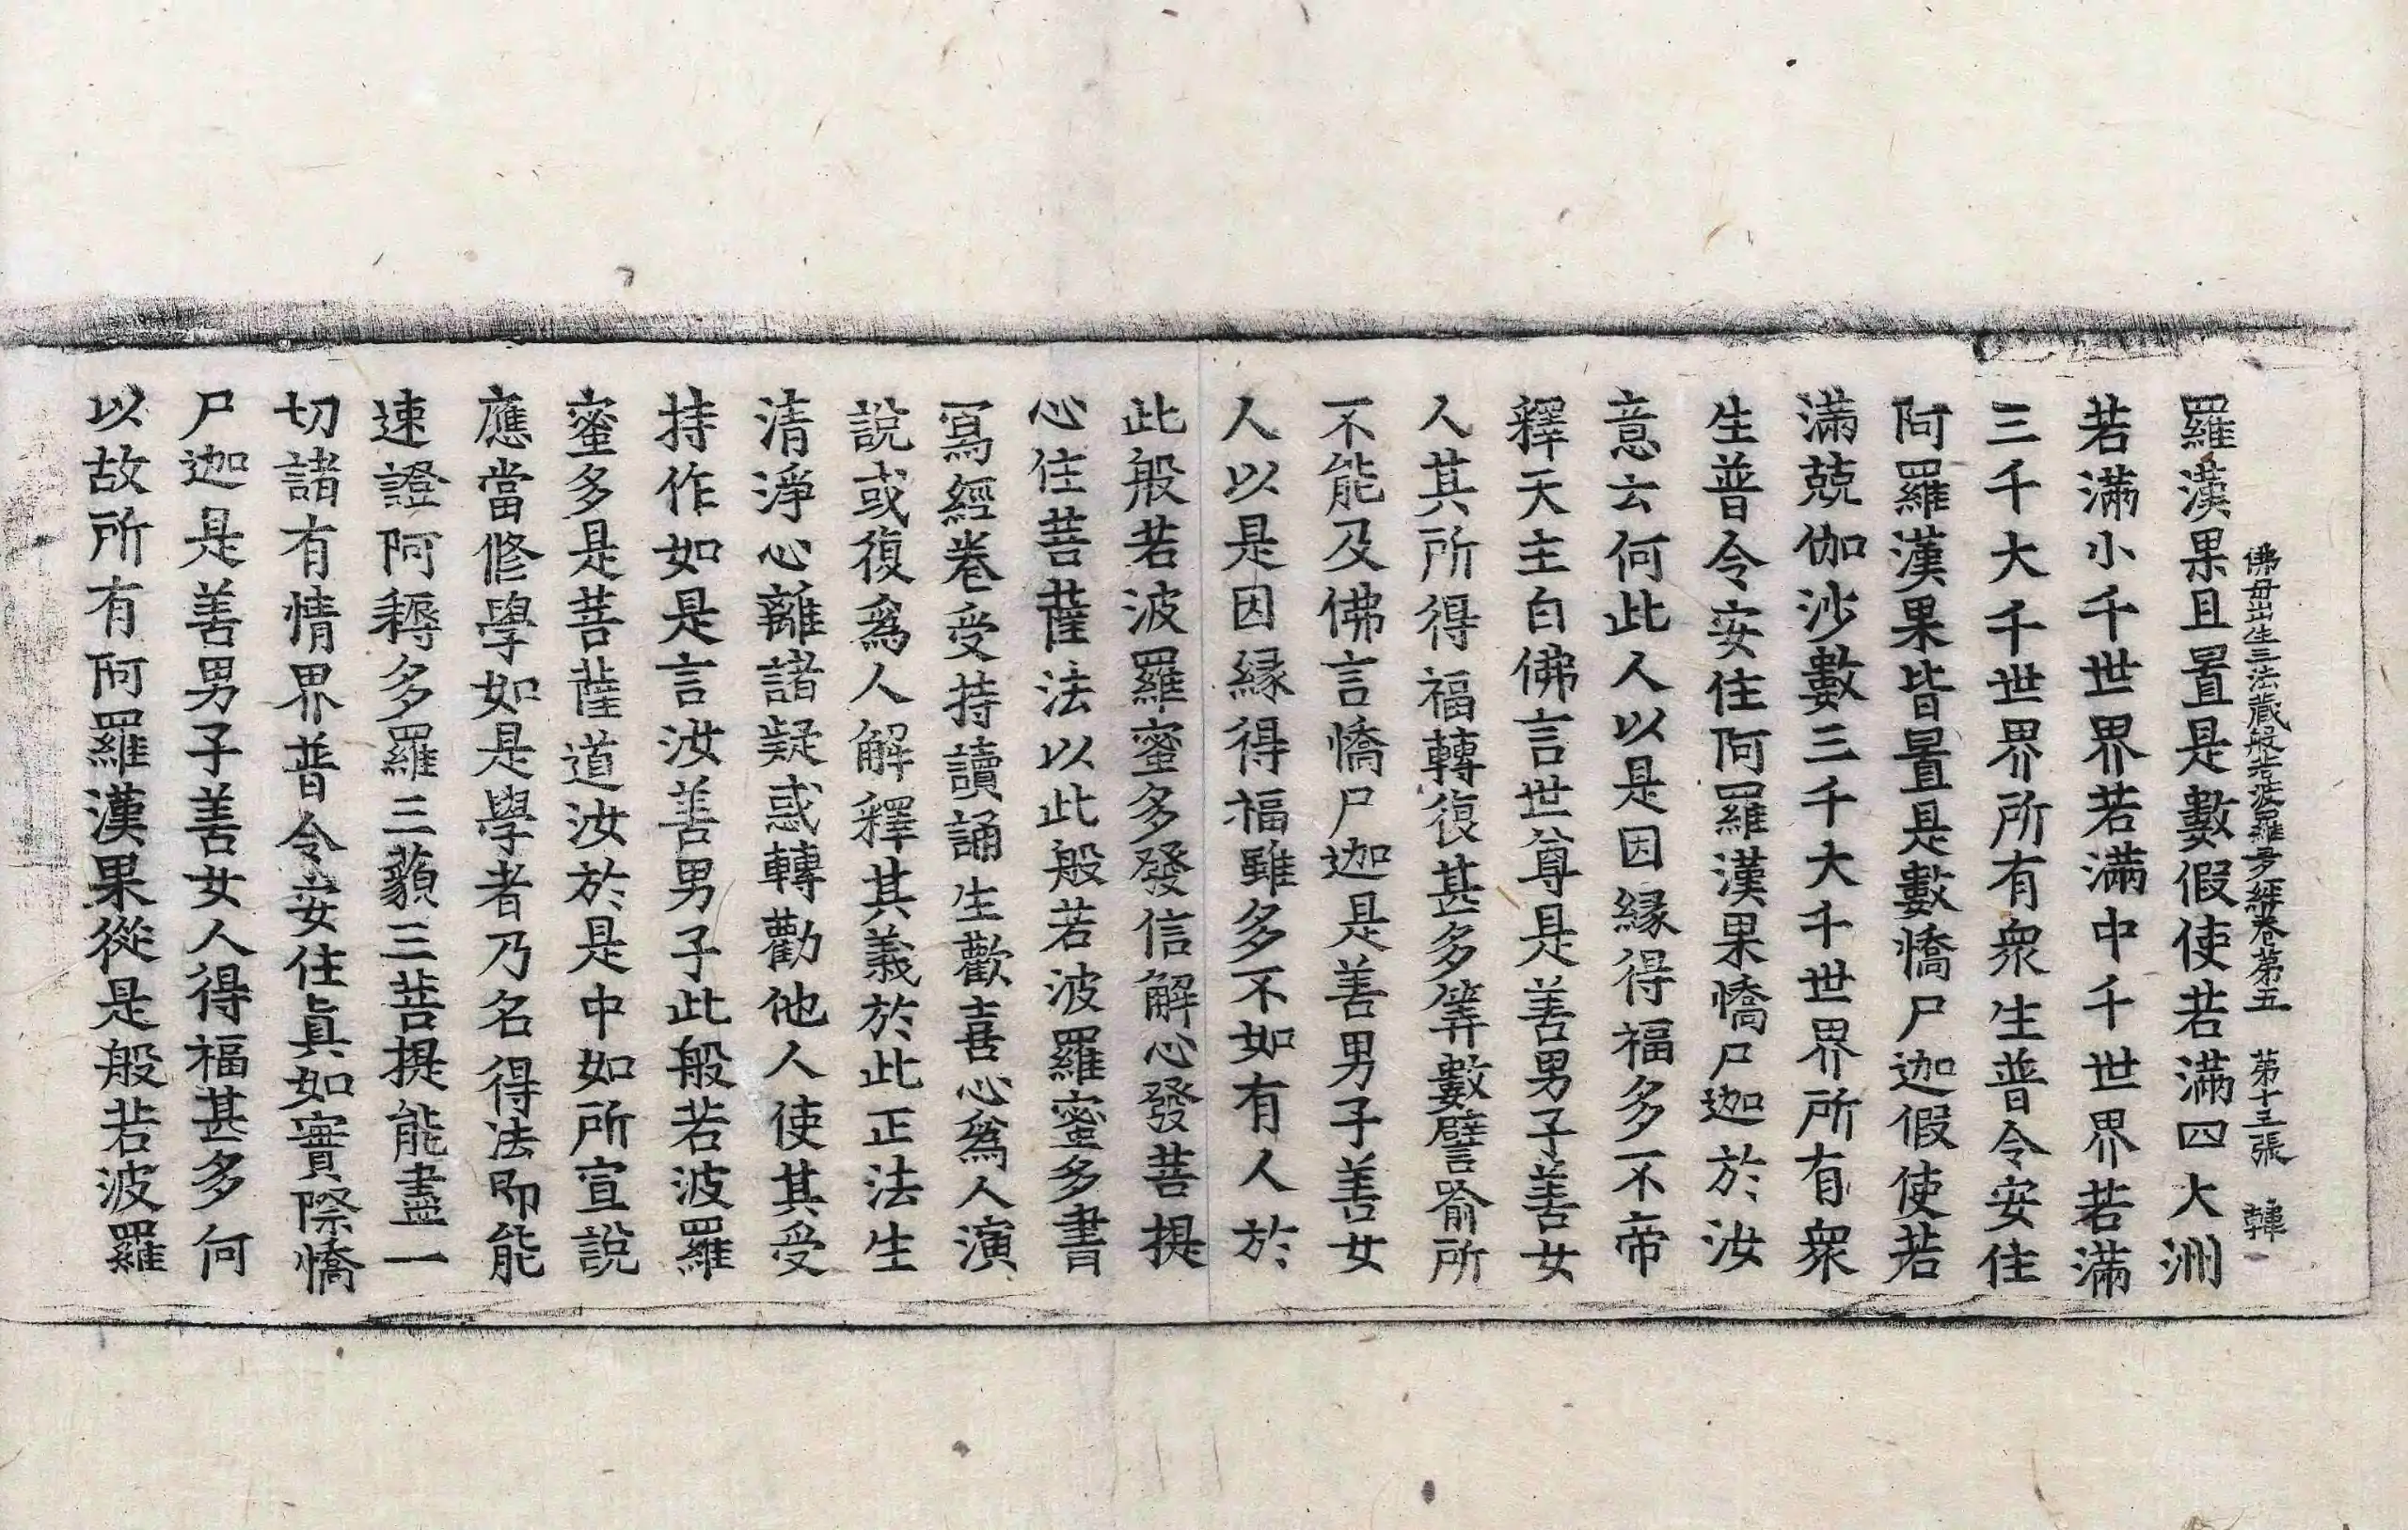 佛母出生三法藏般若波羅蜜多經卷第五　第十三張　韓
羅漢果且置是數假使若滿四大洲
若滿小千世界若滿中千世界若滿
三千大千世界所有衆生普令安住
阿羅漢果皆置是數憍尸迦假使若
滿兢伽沙數三千大千世界所有衆
生普令安住阿羅漢果憍尸迦於汝
意云何此人以是因緣得福多不帝
釋天主白佛言世尊是善男子善女
人其所得福轉復甚多筭數譬喻所
不能及佛言憍尸迦是善男子善女
人以是因緣得福雖多不如有人於
此般若波羅蜜多發信解心發菩提
心住菩薩法以此般若波羅蜜多書
寫經卷受持讀誦生歡喜心爲人演
說或復爲人解釋其義於此正法生
清淨心離諸疑惑轉勸他人使其受
持作如是言汝善男子此般若波羅
蜜多是菩薩道汝於是中如所宣說
應當修學如是學者乃名得法即能
速證阿耨多羅三藐三菩提能盡一
切諸有情界普令安住眞如實際憍
尸迦是善男子善女人得福甚多何
以故所有阿羅漢果從是般若波羅